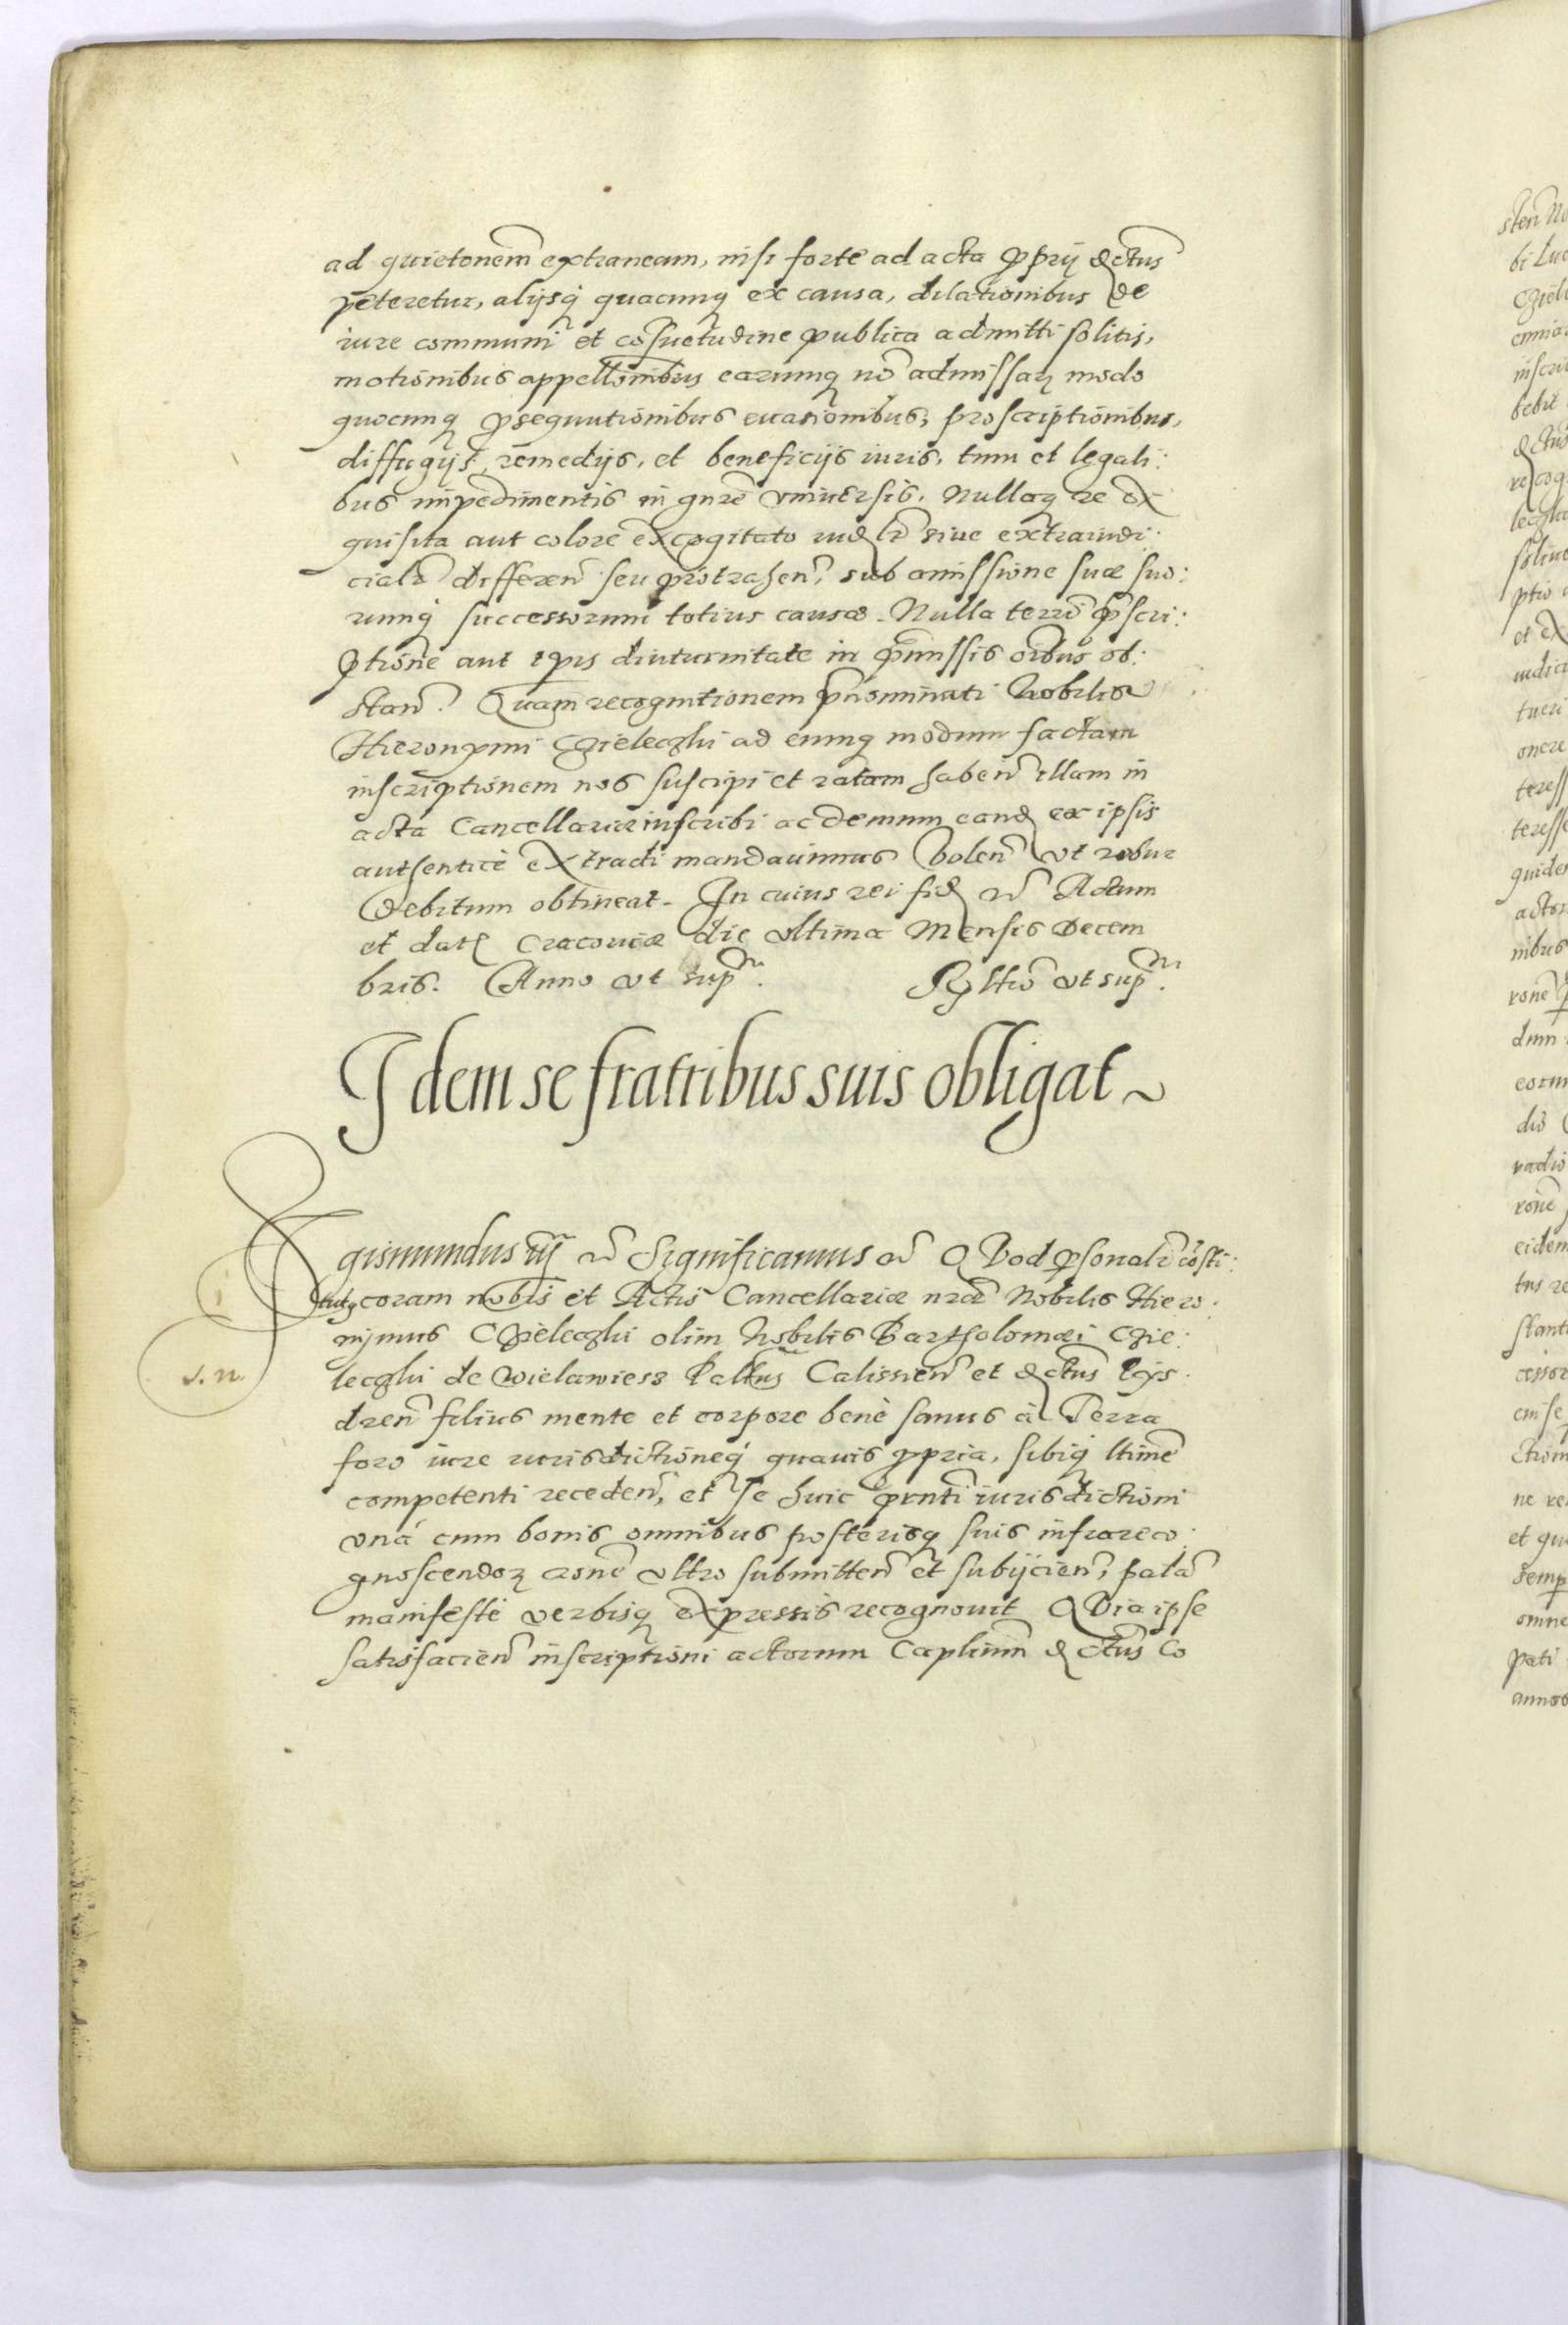 ad quietonem extraneam, nisi forte ad acta pprij dctus
peteretur, alijsq quacunq ex causa, dilationibus de
iure communi et cosuetudine publica admitti solitis,
motionibus appellonibus earumq no admissar modo
quocunq psequutionibus euasionibus, proscriptionibus,
diffugijs, remedijs, et beneficijs iuris, tum et legali:
bus impedimentis in gnre vniuersis. Nullaq re ex
quisita aut colore excogitato iudlr siue extraiudi:
cialr differen seu protrahen, sub amissione suæ suo:
rumq successorum totius causæ. Nulla terre pscri:
ptione aut tpis diuturnitate in pmissis oibus ob:
stan. Quam recognitionem pnominati Nobilis
Hieronymi Czieleczki ad eumq modum factam
inscriptionem nos suscipi et ratam haben illam in
acta Cancellariæ inscribi ac demum eand ex ipsis
authenticè extradi mandauimus volen vt robur
debitum obtineat. In cuius rei fid Actum
et dat Cracouiæ die vltima Mensis Decem
bris. Anno vt sup. Rltio vt sup.
Idem se fratribus suis obligat
Sigismundus iij Significamus Quod psonalr costi:
tut coram nobis et Actis Cancellariæ nræ Nobilis Hiero:
nymus Czieleczki olim Nobilis Bartholomæi Czie:
leczki de Wielawiess Paltus Calissien et dctus Pyz:
dren filius mente et corpore benè sanus à Terra
foro iure iurisdictioneq quauis ppria, sibiq ltime
competenti receden, et se huic pnti iurisdictioni
vnà cum bonis omnibus posterisq suis infrareco:
gnoscendor rone vltro submitten et subijcien, pala
manifestè verbisq expressis recognouit Quia ipse
satisfacien inscriptioni actorum Caplium dctus Co
s. n.